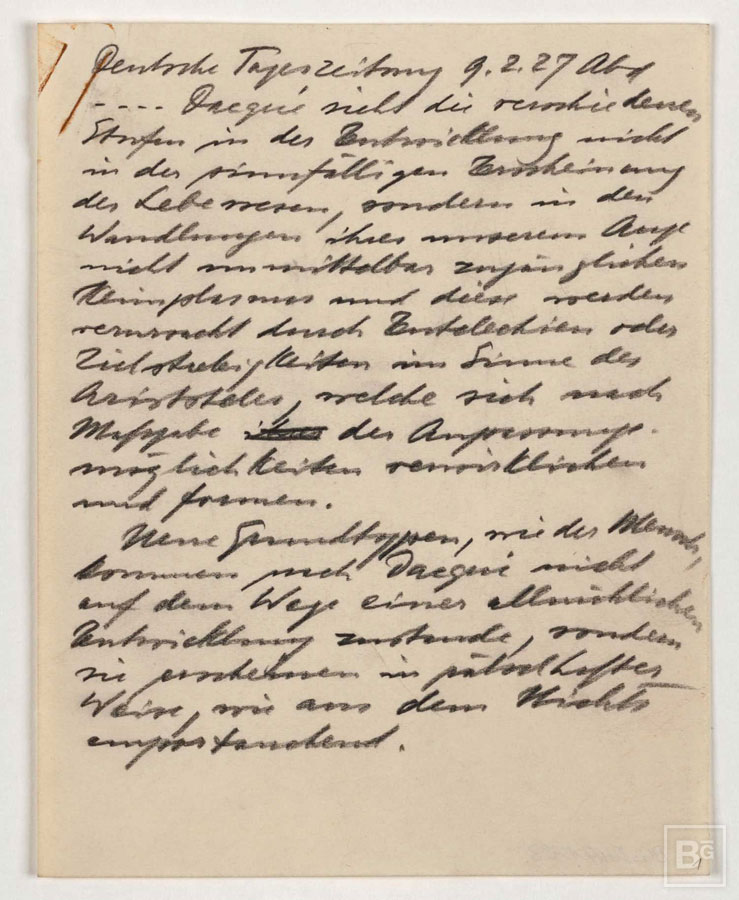 Deutsche Tageszeitung 9.2.27 Abd
---- Dacqué sieht die verschiedenen
Stufen in der Entwicklung nicht
in der sinnfälligen Erscheinung
der Lebewesen, sondern in den
Wandlungen ihres unserem Auge
nicht unmittelbar zugänglichen
Keimplasmas und diese werden
verursacht durch Entelechien oder
Zielstrebigkeiten im Sinne des
Aristoteles, welche sich nach
Maßgabe der Anpassungs-
möglichkeiten verwirklichen
und formen.
Neue Grundtypen, wie der Mensch,
kommen nach Dacqué nicht
auf dem Wege einer allmählichen
Entwicklung zustande, sondern
sie erscheinen in rätselhafter
Weise, wie aus dem Nichts
emportauchend.
BG